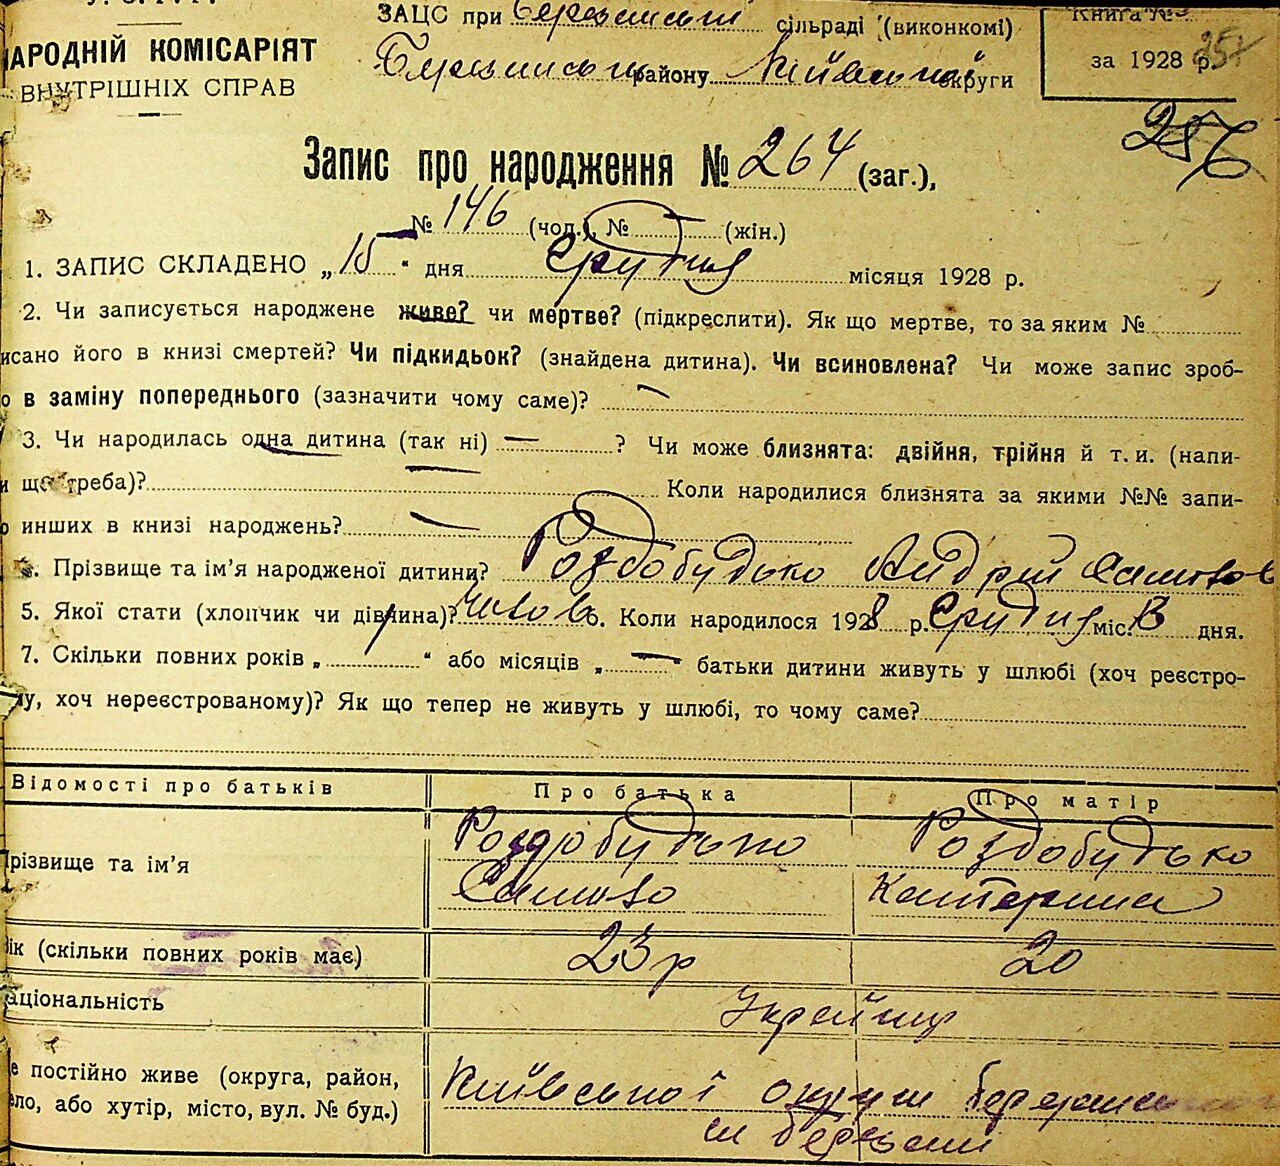 ЗАЦС при Березанській сільраді (виконкомі)
НАРОДНІЙ КОМІСАРІЯТ
ВНУТРІШНІХ СПРАВ
Березанськ району Київської округи
Книга №
за 1928 р. 257
256
Запис про народження № 264 (заг.),
№ 146 (чол.), № — (жін.)
1. ЗАПИС СКЛАДЕНО „15“ дня Грудня місяця 1928 р.
2. Чи записується народжене живе? чи мертве? (підкреслити). Як що мертве, то за яким №
исано його в книзі смертей? Чи підкидьок? (знайдена дитина). Чи всиновлена? Чи може запис зроб-
о в заміну попереднього (зазначити чому саме)? —
3. Чи народилась одна дитина (так ні) — ? Чи може близнята: двійня, трійня й т. и. (напи-
и що треба)? — Коли народилися близнята за якими №№ запи-
о инших в книзі народжень? —
. Прізвище та ім'я народженої дитини? Роздобудько Андрій
5. Якої стати (хлопчик чи дівчина)? Чолов 6. Коли народилося 1928 р. Грудня міс. 13 дня.
7. Скільки повних років „ “ або місяців „ — “ батьки дитини живуть у шлюбі (хоч реєстро-
му, хоч нереєстрованому)? Як що тепер не живуть у шлюбі, то чому саме?
Відомості про батьків Про батька Про матір
Прізвище та ім'я Роздобудько Роздобудько
Катерина
Вік (скільки повних років має) 23 р 20
аціональність Україн
е постійно живе (округа, район, Київської округи
ело, або хутір, місто, вул. № буд.) м Березані